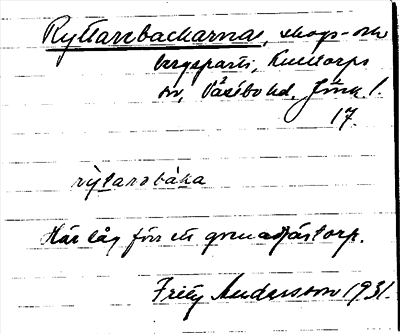 Ryttarebackarna, skogs- och
bergsparti, Kulltorps
sn, Västbo hd, Jönk. l.
17.
rýtarəbáka
Här låg förr ett grenadjärstorp.
Fritz Andersson 1931.